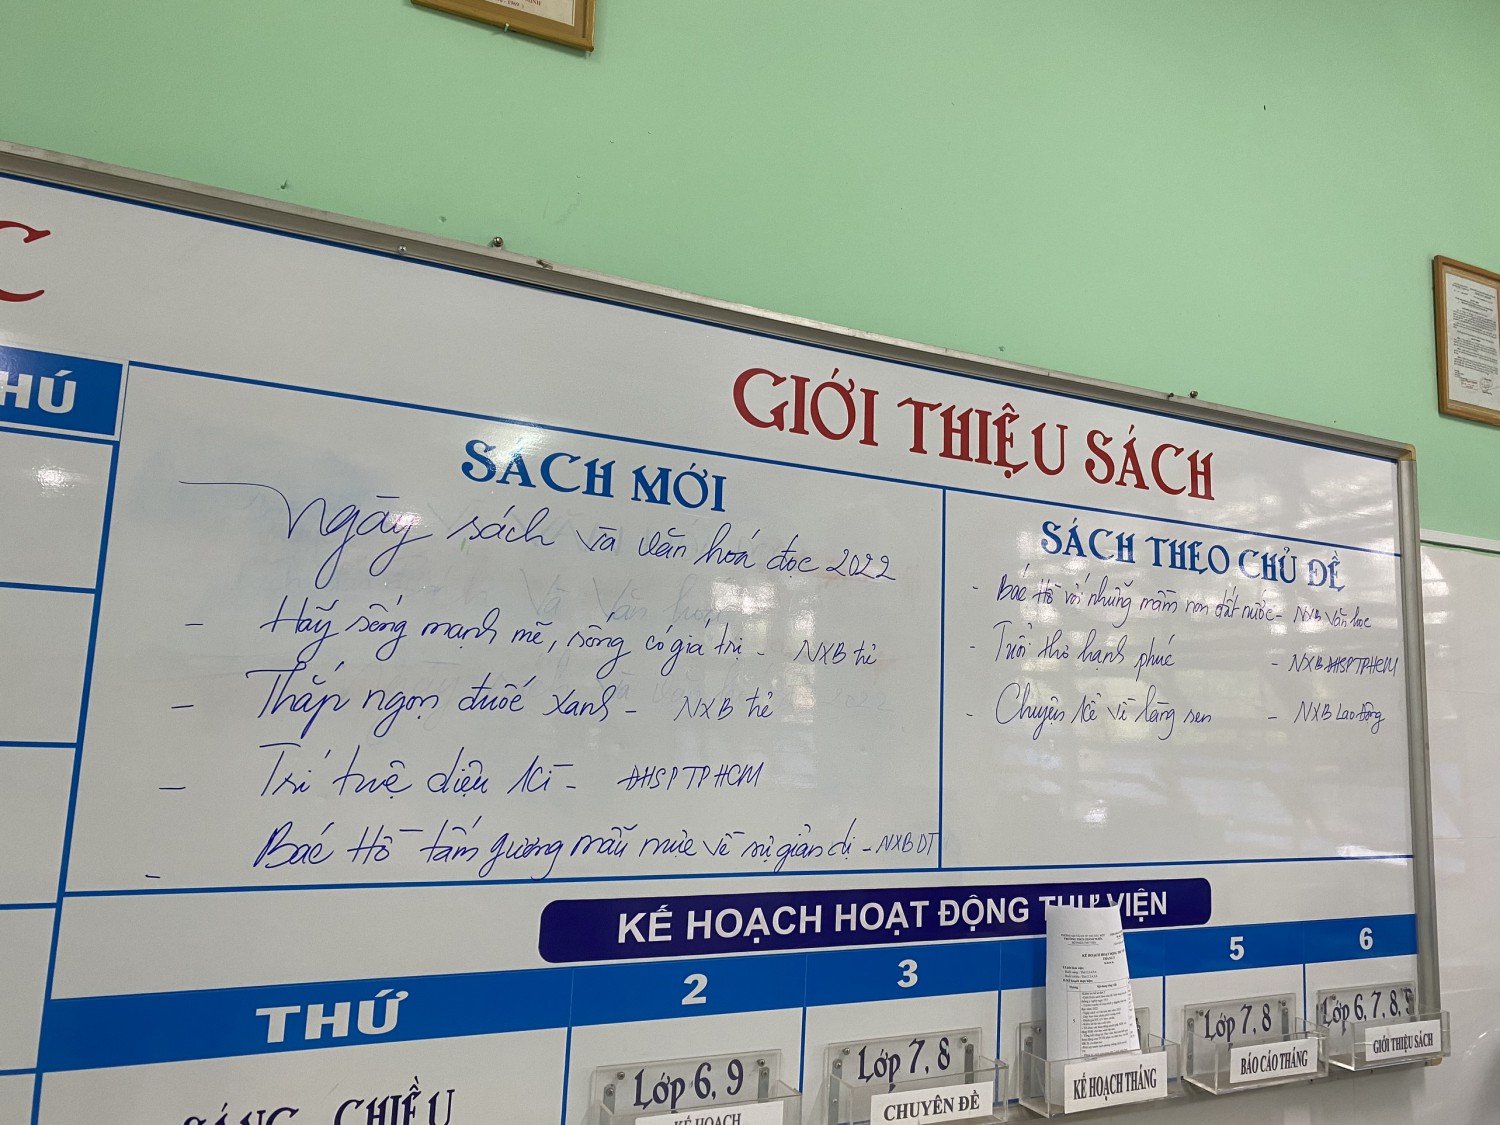 C
GIỚI THIỆU SÁCH
HÚ
SÁCH MỚI
Ngày sách và văn hoá đọc 2022
- Hãy sống mạnh mẽ, sống có giá trị - NXB trẻ
- Thắp ngọn đuốc xanh - NXB trẻ
- Trí tuệ diệu kì - ĐHSPTPHCM
- Bác Hồ tấm gương mẫu mực về sự giản dị - NXB DT
SÁCH THEO CHỦ ĐỀ
- Bác Hồ với những mầm non đất nước - NXB Văn học
- Tuổi thơ hạnh phúc - NXB ĐHSPTPHCM
- Chuyện kể về làng sen - NXB Lao động
KẾ HOẠCH HOẠT ĐỘNG THƯ VIỆN
THỨ 2 3 5 6
SÁNG CHIỀU
Lớp 6, 9
KẾ HOẠCH
Lớp 7, 8
CHUYÊN ĐỀ
KẾ HOẠCH THÁNG
Lớp 7, 8
BÁO CÁO THÁNG
Lớp 6, 7, 8, 9
GIỚI THIỆU SÁCH